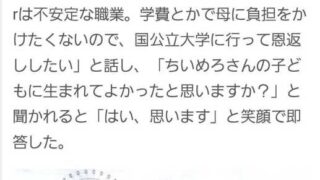 rは不安定な職業。学費とかで母に負担をか
けたくないので、国公立大学に行って恩返
ししたい」と話し、「ちいめろさんの子ど
もに生まれてよかったと思いますか？」と
聞かれると「はい、思います」と笑顔で即
答した。